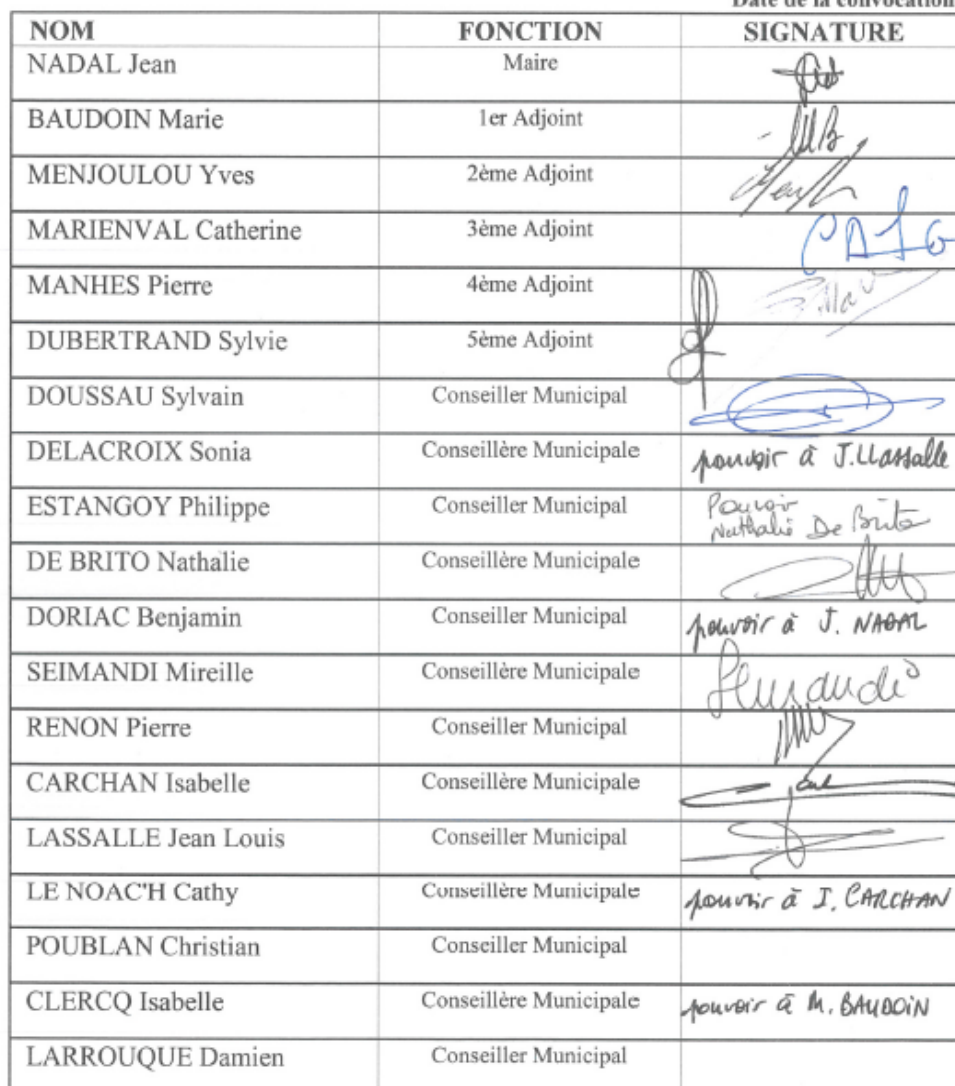 Date de la convocation
NOM FONCTION SIGNATURE
NADAL Jean Maire
BAUDOIN Marie 1er Adjoint
MENJOULOU Yves 2ème Adjoint
MARIENVAL Catherine 3ème Adjoint
MANHES Pierre 4ème Adjoint
DUBERTRAND Sylvie 5ème Adjoint
DOUSSAU Sylvain Conseiller Municipal
DELACROIX Sonia Conseillère Municipale pouvoir à J.LLassalle
ESTANGOY Philippe Conseiller Municipal Pouvoir
Nathalie De Brito
DE BRITO Nathalie Conseillère Municipale
DORIAC Benjamin Conseiller Municipal pouvoir à J. NADAL
SEIMANDI Mireille Conseillère Municipale
RENON Pierre Conseiller Municipal
CARCHAN Isabelle Conseillère Municipale
LASSALLE Jean Louis Conseiller Municipal
LE NOAC'H Cathy Conseillère Municipale pouvoir à I. CARCHAN
POUBLAN Christian Conseiller Municipal
CLERCQ Isabelle Conseillère Municipale pouvoir à M. BAUDOIN
LARROUQUE Damien Conseiller Municipal